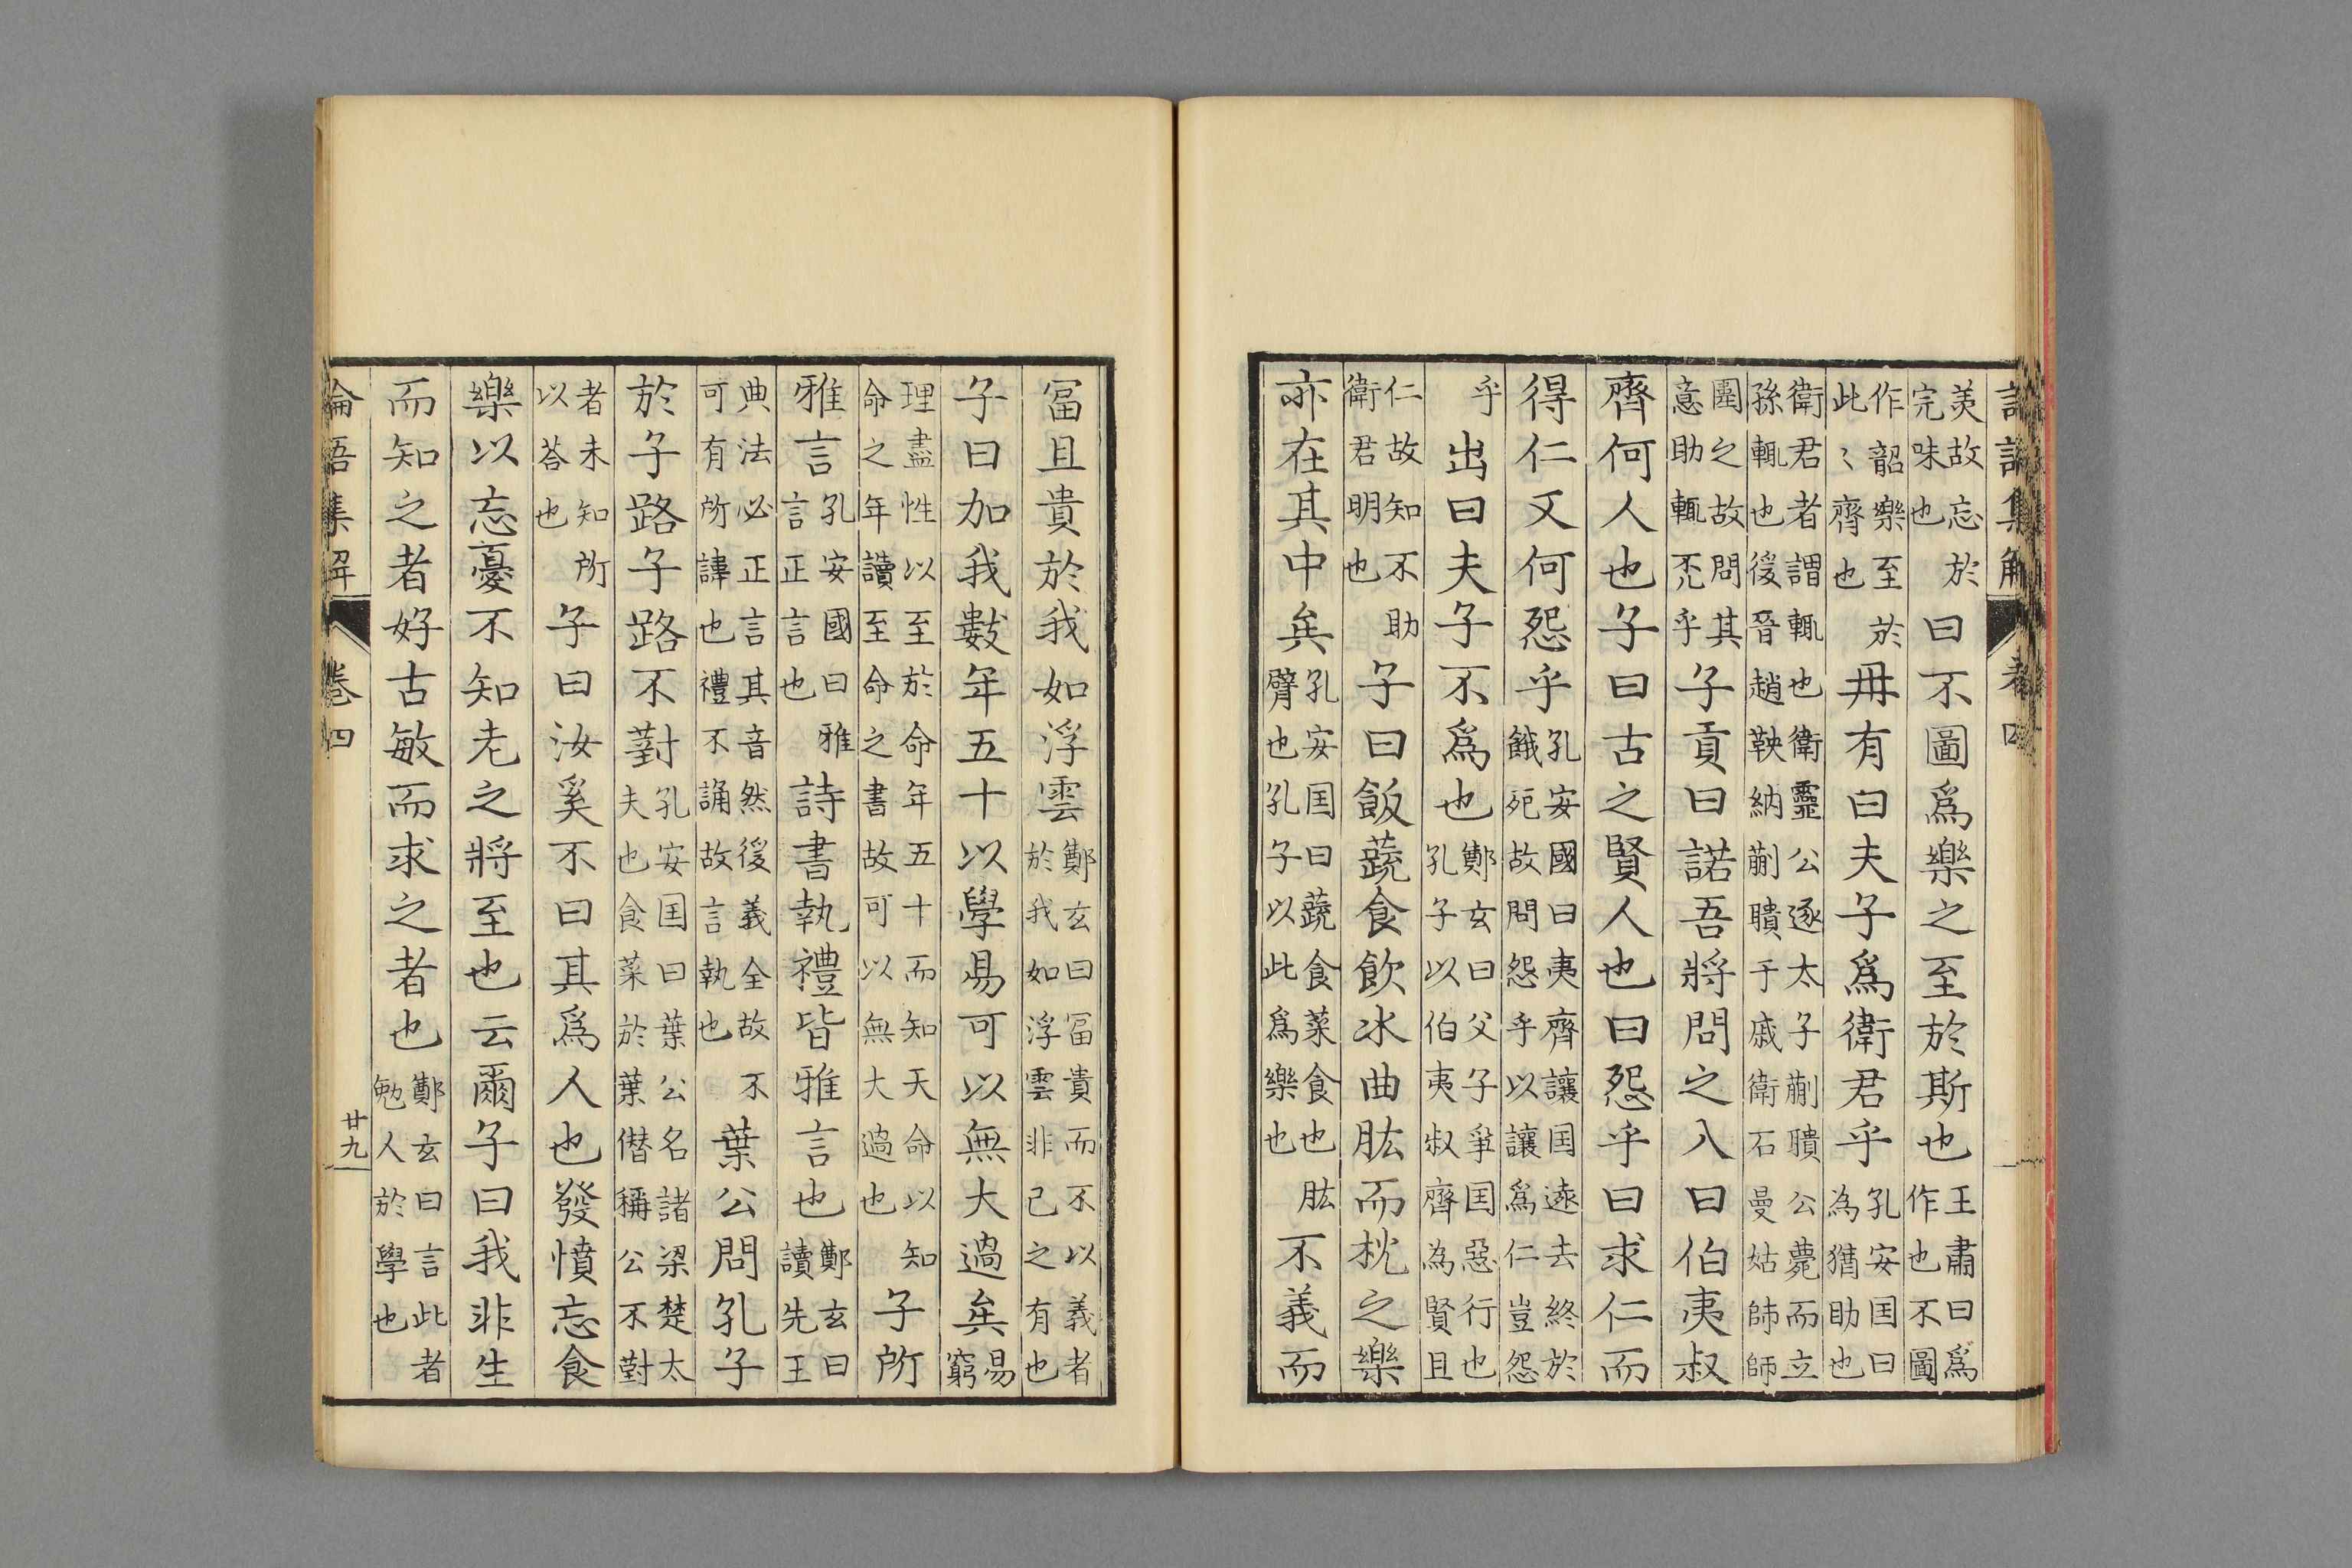 論語集解 卷四
羙故忘於
完味也
曰不圖爲樂之至於斯也
王肅曰爲
作也不圖
作韶樂至於
此〻齊也
冉有曰夫子爲衛君乎
孔安囯曰
為猶助也
衛君者謂輒也衛靈公逐太子蒯聵公薨而立
孫輒也後晉趙鞅納蒯聵于戚衛石曼姑師師
圍之故問其
意助輒不乎
子貢曰諾吾將問之入曰伯夷叔
齊何人也子曰古之賢人也曰怨乎曰求仁而
得仁又何怨乎
孔安國曰夷齊讓囯遠去終於
餓死故問怨乎以讓爲仁豈怨
乎
出曰夫子不爲也
鄭玄曰父子爭囯惡行也
孔子以伯夷叔齊為賢且
仁故知不助
衛君明也
子曰飯蔬食飲水曲肱而枕之樂
亦在其中矣
孔安囯曰蔬食菜食也肱
臂也孔子以此爲樂也
不義而
冨且貴於我如浮雲
鄭玄曰冨貴而不以義者
於我如浮雲非己之有也
子曰加我數年五十以學易可以無大過矣
易
窮
理盡性以至於命年五十而知天命以知
命之年讀至命之書故可以無大過也
子所
雅言
孔安國曰雅
言正言也
詩書執禮皆雅言也
鄭玄曰
讀先王
典法必正言其音然後義全故不
可有所諱也禮不誦故言執也
葉公問孔子
於子路子路不對
孔安囯曰葉公名諸梁楚太
夫也食菜於葉僣稱公不對
者未知所
以荅也
子曰汝奚不曰其爲人也發憤忘食
樂以忘憂不知老之將至也云爾子曰我非生
而知之者好古敏而求之者也
鄭玄曰言此者
勉人於學也
論語集解 卷四 廿九